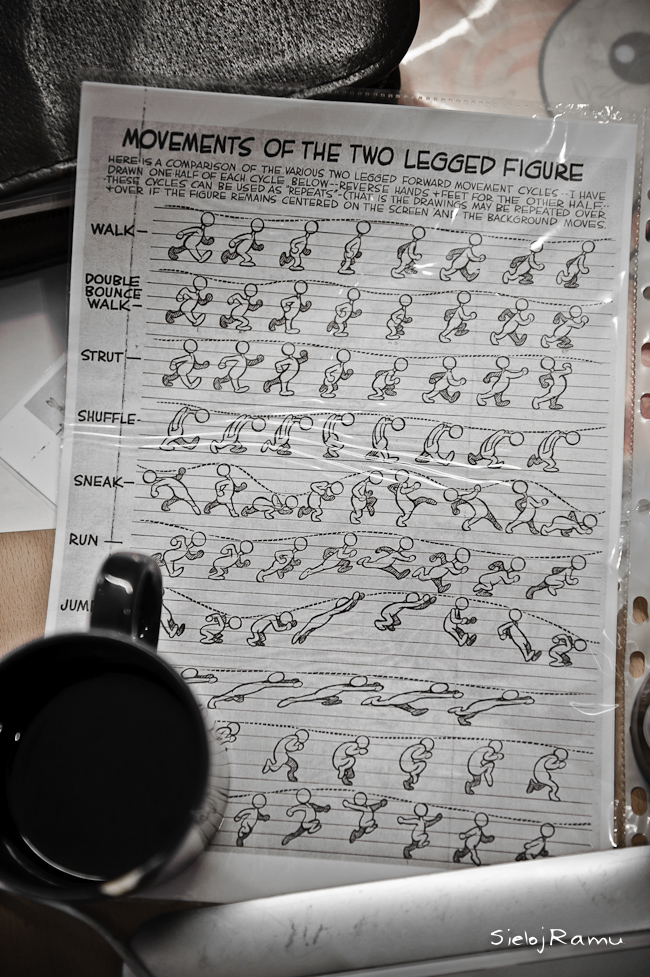 MOVEMENTS OF THE TWO LEGGED FIGURE
HERE IS A COMPARISON OF THE VARIOUS TWO LEGGED FORWARD MOVEMENT CYCLES -- I HAVE
DRAWN ONE HALF OF EACH CYCLE BELOW -- REVERSE HANDS + FEET FOR THE OTHER HALF--
THESE CYCLES CAN BE USED AS "REPEATS"-(THAT IS THE DRAWINGS MAY BE REPEATED OVER
+OVER IF THE FIGURE REMAINS CENTERED ON THE SCREEN AND THE BACKGROUND MOVES.
WALK-
DOUBLE
BOUNCE
WALK-
STRUT-
SHUFFLE-
SNEAK-
RUN -
JUM
SielojRamu